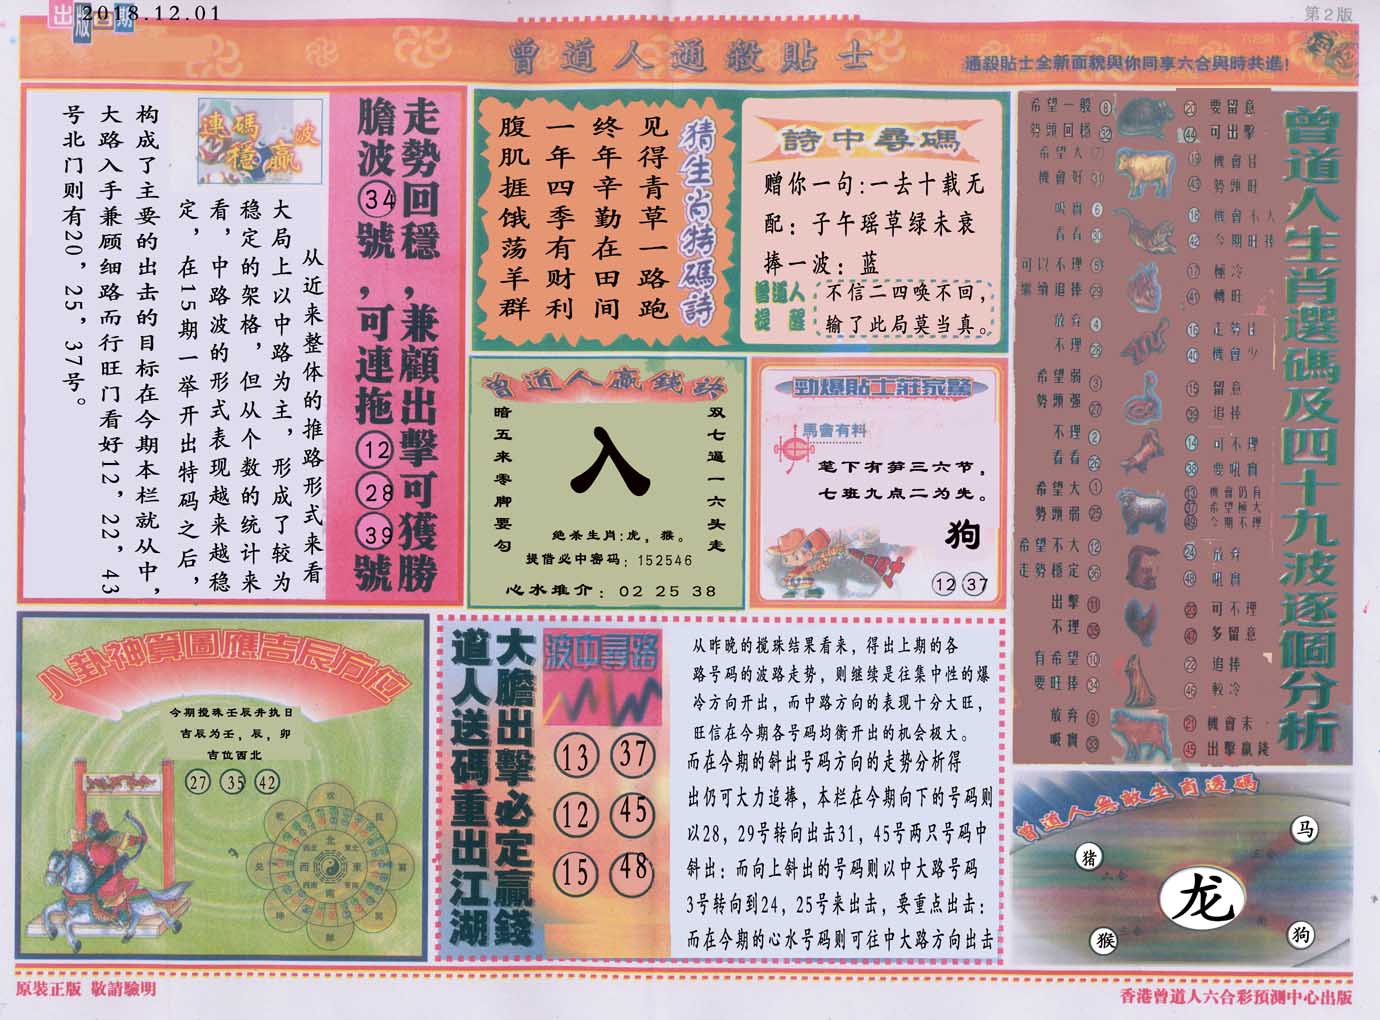 出版日期
2018.12.01
第2版
曾道人通殺貼士
通殺貼士全新面貌與你同享六合與時共進!
走勢回穩,兼顧出擊可獲勝
膽波34號,可連拖12 28 39號
連碼穩贏波
从近来整体的推路形式来看
大局上以中路为主,形成了较为
稳定的架格,但从个数的统计来
看,中路波的形式表现越来越稳
定,在15期一举开出特码之后,
构成了主要的出击的目标在今期本栏就从中,
大路入手兼顾细路而行旺门看好12,22,43
号北门则有20,25,37号。
猜生肖特碼詩
见得青草一路跑
终年辛勤在田间
一年四季有财利
腹肌捱饿荡羊群
詩中尋碼
赠你一句:一去十载无
配:子午瑶草绿未衰
捧一波:蓝
曾道人提醒
不信二四唤不回,
输了此局莫当真。
曾道人贏錢詩
双七逼一六头走
暗五来零脚要勾
入
绝杀生肖:虎,猴。
提借必中密码:152546
心水推介:02 25 38
勁爆貼士莊家驚
馬會有料
笔下有笋三六节,
七班九点二为先。
狗
12 37
曾道人生肖選碼及四十九波逐個分析
希望一般 8
勢頭回穩 32
希望大 7
機會好 31
吸實 6
看看 30
可以不理 5
繼續追捧 29
放弃 4
不理 28
希望弱 3
勢頭强 27
不理 2
看看 26
希望大 1
勢頭弱 25
希望不大 12
走勢穩定 36
出擊 11
不理 35
有希望 10
要旺捧 34
放弃 9
吸實 33
20 要留意
44 可出擊
19 機會佳
43 勢頭旺
18 機會不大
42 今期旺捧
17 極冷
41 轉旺
16 走勢佳
40 機會少
15 留意
39 追捧
14 可不理
38 要吼實
13 機會仍有
37 希望極大
49 今期不理
24 放弃
48 吼實
23 可不理
47 多留意
22 追捧
46 較冷
21 機會末
45 出擊贏錢
八卦神算圖應吉辰方位
今期搅珠壬辰井执日
吉辰为壬,辰,卯
吉位西北
27 35 42
大膽出擊必定贏錢
道人送碼重出江湖
波中尋路
13 37
12 45
15 48
从昨晚的搅珠结果看来,得出上期的各
路号码的波路走势,则继续是往集中性的爆
冷方向开出,而中路方向的表现十分大旺,
旺信在今期各号码均衡开出的机会极大。
而在今期的斜出号码方向的走势分析得
出仍可大力追捧,本栏在今期向下的号码则
以28,29号转向出击31,45号两只号码中
斜出:而向上斜出的号码则以中大路号码
3号转向到24,25号来出击,要重点出击:
而在今期的心水号码则可往中大路方向出击
曾道人無敵生肖透碼
猪
马
龙
猴
狗
原裝正版 敬請驗明
香港曾道人六合彩預測中心出版